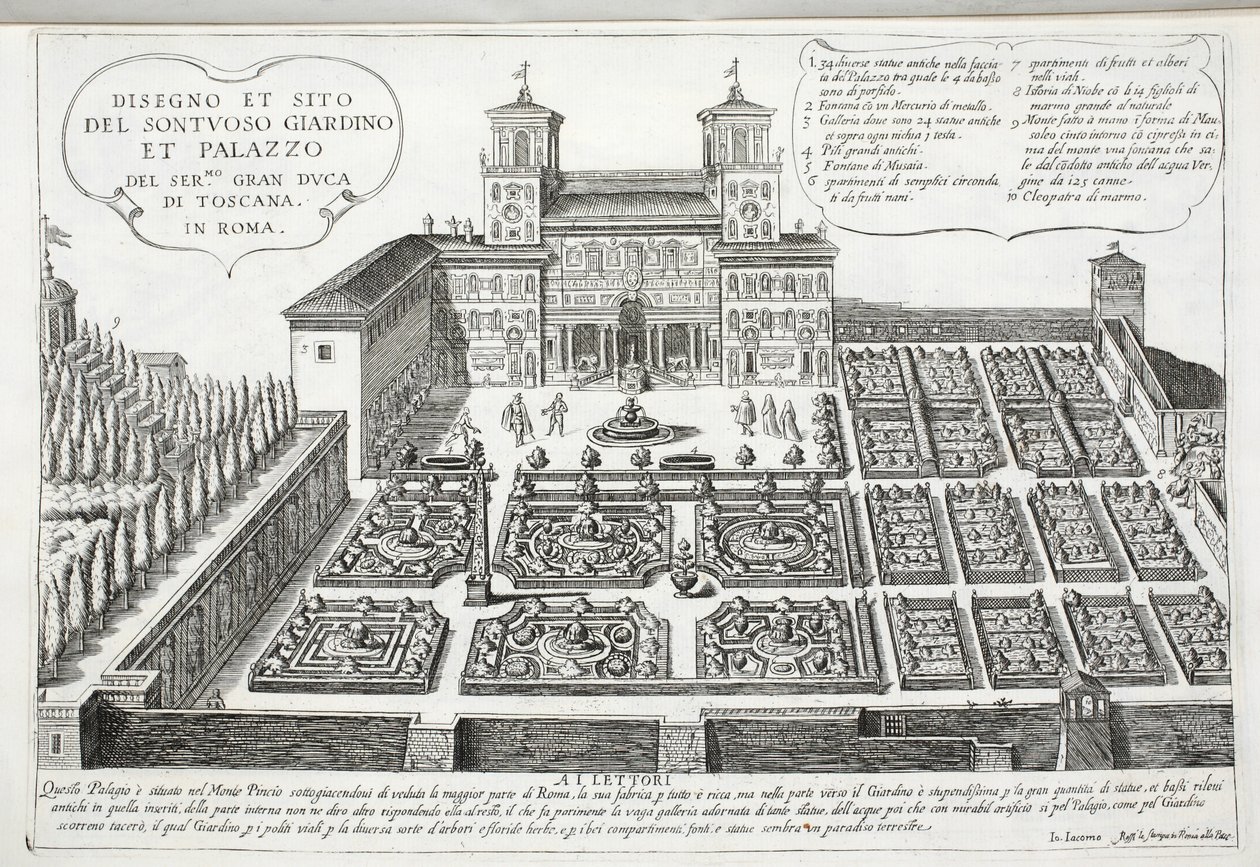 DISEGNO ET SITO
DEL SONTVOSO GIARDINO
ET PALAZZO
DEL SER.MO GRAN DVCA
DI TOSCANA.
IN ROMA.
1. 34 diuerse statue antiche nella faccia-
ta del Palazzo tra quale le 4 da basso
sono di porfido.
2 Fontana cō vn Mercurio di metallo.
3 Galleria doue sono 24 statue antiche
et sopra ogni nichia 1 testa.
4 Pili grandi antichi.
5 Fontane di Musaia.
6 spartimenti di semplici circonda
ti da frutti nani.
7 spartimenti di frutti et alberi
nelli viali.
8 Istoria di Niobe cō li 14 figlioli di
marmo grande al naturale
9 Monte fatto à mano ī forma di Mau-
soleo cinto intorno cō cipressi in ci-
ma del monte vna fontana che sa-
le dal cōdotto anticho dell acqua Ver-
gine da 125 canne.
10 Cleopatra di marmo.
9
3
4
4
10
A I LETTORI
Questo Palagio è situato nel Monte Pincio sottogiacendoui di veduta la maggior parte di Roma, la sua fabrica p tutto è ricca, ma nella parte verso il Giardino è stupendissima p la gran quantità di statue, et bassi rileui
antichi in quella inseriti, della parte interna non ne diro altro rispondendo ella al resto, il che fa parimente la vaga galleria adornata di tante statue, dell'acque poi che con mirabil artificio si pel Palagio, come pel Giardino
scorreno tacerò, il qual Giardino p i politi viali p la diuersa sorte d'arbori e floride herbe, e p i bei compartimenti, fonti, e statue sembra vn paradiso terrestre
Io. Iacomo Rossi le stampa in Roma alla Pace